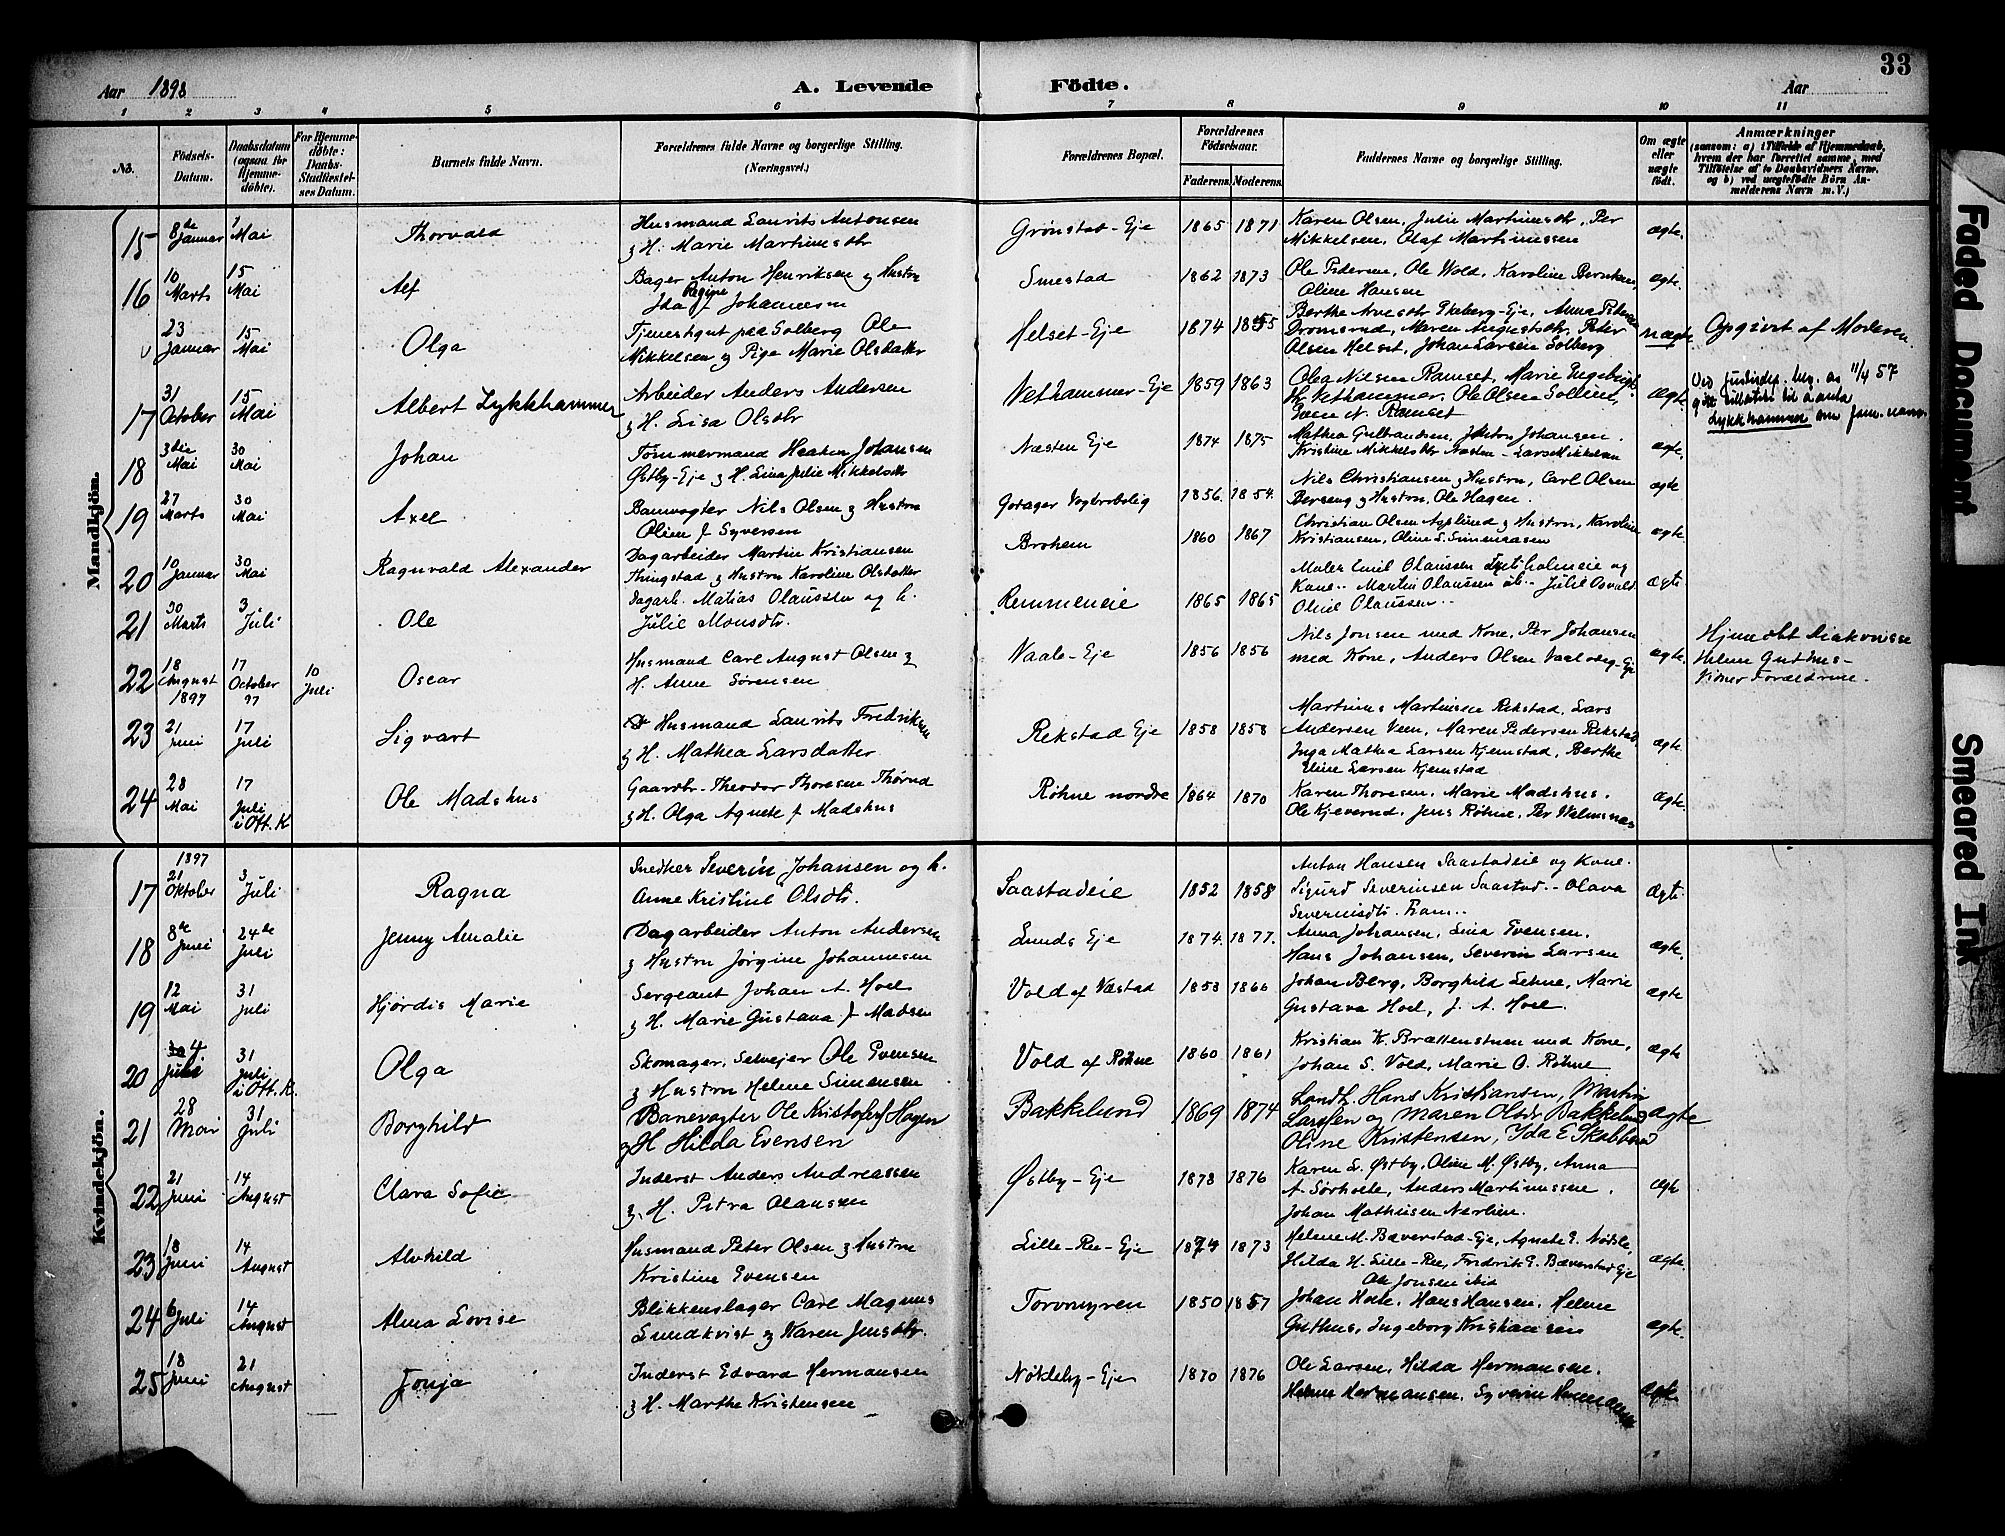 33
Aar 1898
A. Levende Födte.
Aar
1 2 3 4 5 6 7 8 9 10 11
No.
Födsels-Datum.
Daabsdatum (ogsaa for Hjemmedøbte).
For Hjemmedøbte: Daabs-Stadfæstelses Datum.
Barnets fulde Navn.
Forældrenes fulde Navne og borgerlige Stilling. (Næringsvei.)
Forældrenes Bopæl.
Forældrenes Födselsaar.
Faderens Moderens
Faddernes Navne og borgerlige Stilling.
Om ægte eller uægte födt.
Anmærkninger (saasom: a) i Tilfælde af Hjemmedaab, hvem der har forrettet samme, med Tilföielse af to Daabsvidners Navne, og b) ved uægtefödte Börn Anmelderens Navn m.V.)
Mandkjön.
15 8de Januar 1 Mai Thorvald
Husmand Laurits Antonsen
& H. Marie Martinusdtr
Grønstad-Eje 1865 1871
Karen Olsen, Julie Martinusdtr, Per
Mikkelsen, Olaf Martinussen
ægte.
16 10 Marts 15 Mai Alf
Bager Anton Henriksen & Hustru
Ida Regine f Johannesen
Smestad 1862 1873
Ole Pedersen, Ole Wold, Karoline
Oline Hansen
ægte.
23 Januar 15 Mai Olga
Tjenestgut paa Solberg Ole
Mikkelsen & Pige Marie Olsdatter
Helset-Eje 1874
Olsen Helset, Johan Larsen Solberg
uægte
Opgivet af Moderen.
17 31 October 15 Mai Albert Lykkhammer
Arbeider Anders Andersen
& H. Lisa Olsdtr
Vethammer-Eje 1859 1863
Olea Nilsen Ramset, Marie
Vethammer, Ole Olsen
Even N. Ramset
ægte.
11/4 57
Lykkhammer
18 3die Mai 30 Mai Johan
Tømmermand Haaken Johansen
Østby-Eje & H. Lina Julie Mikkelsdtr
Næsten Eje 1874 1875
Mathea Gulbrandsen, Anton Johansen.
Kristine Mikkelsdtr Næsten - Lars Mikkelsen
ægte.
19 27 Marts 30 Mai Axel
Banevogter Nils Olsen & Hustru
Oline f Syversen
1856. 1854.
Nils Christiansen & Hustru, Carl Olsen
Berseng & Hustru, Ole Hagen.
ægte
20 10 Januar 30 Mai Ragnvald Alexander
Dagarbeider Martin Kristiansen
Thingstad & Hustru Karoline Olsdatter
Brohem 1860 1867
Christian Olsen Asplund & Hustru, Karoline
Kristiansen, Oline S. Simensen
ægte
21 30 Marts 3 Juli Ole
Dagarb. Matias Olaussen og h.
Julie Monsdtr.
Remmeneie 1865 1865
Maler Emil Olaussen
Kone -- Martin Olaussen ib -- Julie Osvald
Oline Olaussen --
ægte
22 18 August 1897 17 October 97 10 Juli Oscar
Husmand Carl August Olsen &
H. Anne Sørensen
Vaale-Eje 1856 1856
Nils Jonsen med Kone, Per Johansen
med Kone, Anders Olsen
ægte.
Hjemdbt
Helene Guthus-
Vidner Forældrene.
23 21 Juni 17 Juli Sigvart
Husmand Laurits Fredriksen
& H. Mathea Larsdatter
Rekstad Eje 1858 1858
Martinus Martinsen Rekstad, Lars
Andersen Veen, Maren Pedersen Rekstad,
Inga Mathea Larsen Kjemstad, Berthe
Eline Larsen Kjemstad
ægte
24 28 Mai 17 Juli i Ott. K Ole Madshus
Gaardbr. Theodor Thoresen
& H. Olga Agnete f Madshus
Røhne nordre 1864 1870
Karen Thoresen, Marie Madshus.
Ole Kjeverud, Jens Røhne, Per
ægte.
Kvindekjön.
17 1897 21 Oktober 3 Juli Ragna
Snedker Severin Johansen og h.
Anne Kristine Olsdtr.
Saastadeie 1852 1858
Anton Hansen Saastadeie og Kone.
Sigurd Severinsen Saastad -- Olava
Severinsdtr. Fram --
ægte.
18 8de Juni 24de Juli Jenny Amalie
Dagarbeider Anton Andersen
& Hustru Jørgine Johannesen
Lunds Eje 1874. 1877.
Anna Johansen, Lina Evensen.
Hans Johansen, Severin Larsen
ægte.
19 12 Mai 31 Juli Hjördis Marie
Sergeant Johan A. Hoel
& H. Marie Gustava f Madsen
Vold af Væstad 1853 1866
Johan Berg, Borghild Lehne, Marie
Gustava Hoel, J. A. Hoel.
ægte
20 4 Juli 31 Juli i Ott. K. Olga
Skomager, Selvejer Ole Evensen
& Hustru Helene Simensen
Vold af Røhne 1860 1861
Kristian K. Brættenstuen med Kone,
Johan S. Vold, Marie O. Røhne
ægte
21 28 Mai 31 Juli Borghild
Banevogter Ole Kristofersen Hagen
& H Hilda Evensen
Bakkelund 1869 1874
Landh. Hans Kristiansen, Martin
Larssen og Maren Olsdtr Bakkelund
Oline Kristensen, Ida E Skabberud
ægte
22 21 Juni 14 August Clara Sofie
Inderst Anders Andreassen
& H. Petra Olausen
Østby-Eje 1873 1876
Karen L. Østby, Oline M. Østby, Anna
A. Sørholte, Anders Martinussen,
Johan Mathisen Nerlien.
ægte
23 18 Juni 14 August Alvhild
Husmand Peter Olsen & Hustru
Kristine Evensen
Lille-Ree-Eje 1874 1873
Helene M. Bæverstad-Eje, Agnete E. Nökle,
Hilda H. Lille-Ree, Fredrik E. Bæverstad Eje
Ole Jonsen ibid
ægte.
24 6 Juli 14 August Alma Lovise
Blikkenslager Carl Magnus
Lundkvist & Karen Jensdtr.
Torvmyren 1850 1857
Johan Hoel, Hans Hansen, Helene
Guthus, Ingeborg Kristiansen
ægte.
25 18 Juni 21 August Tonja
Inderst Edvard Hermansen
& H. Marthe Kristensen
Nökleby-Eje 1870 1876
Ole Larsen, Hilda Hermansen.
Helene Hermansen, Syverin Hermansen
ægte.
Faded Document
Smeared Ink